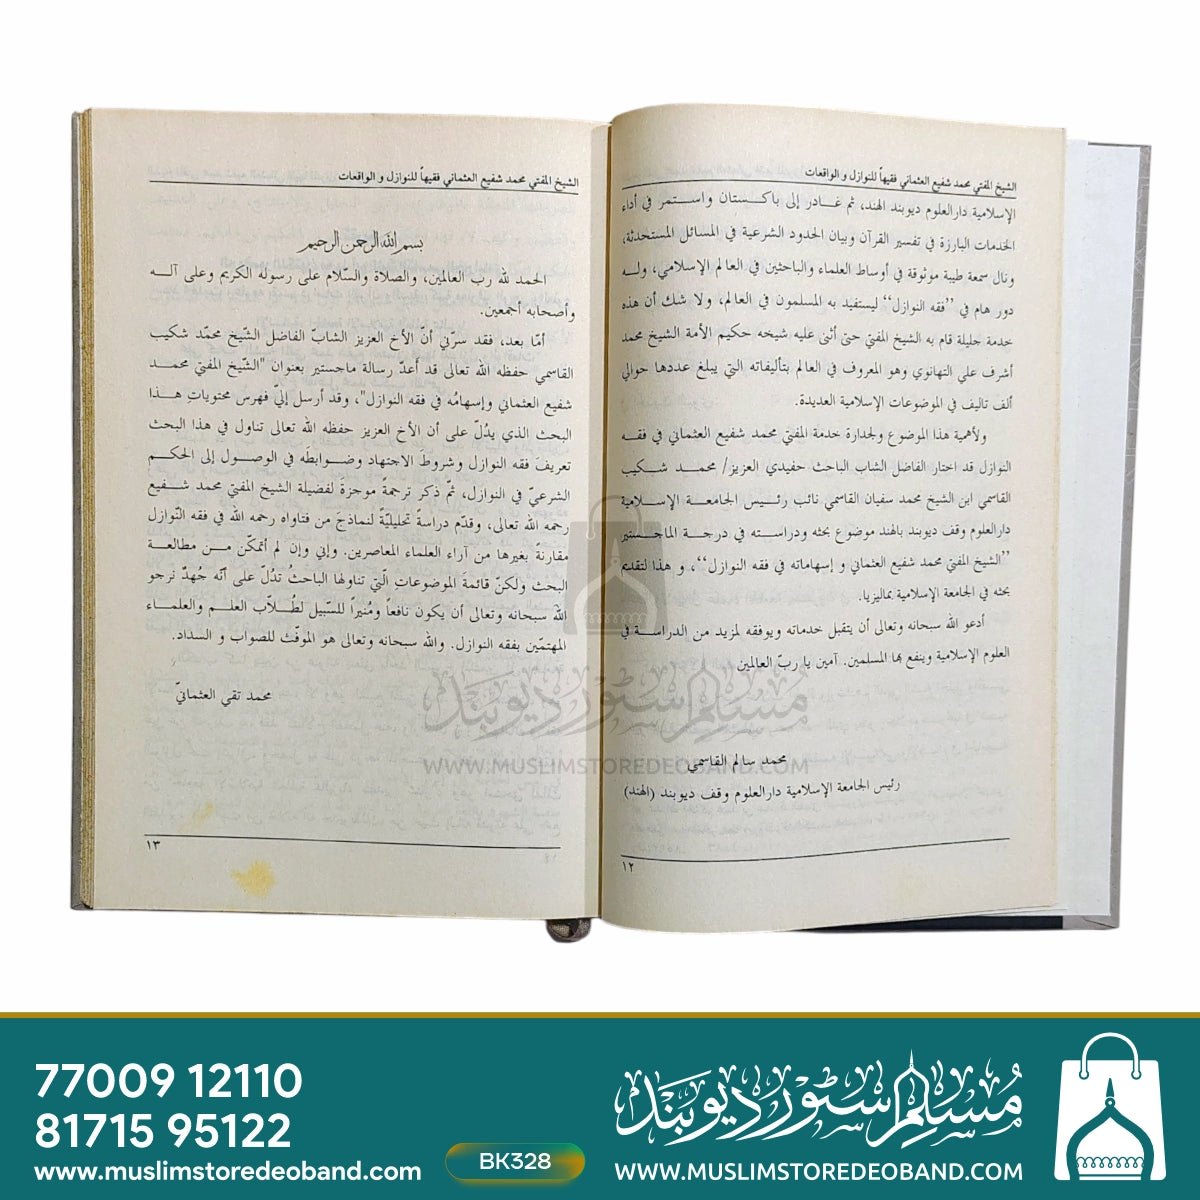 الشيخ المفتي محمد شفيع العثماني فقيهاً للنوازل و الواقعات
الإسلامية دارالعلوم ديوبند الهند، ثم غادر إلى باكستان واستمر في أداء
الخدمات البارزة في تفسير القرآن وبيان الحدود الشرعية في المسائل المستحدثة،
ونال سمعة طيبة موثوقة في أوساط العلماء والباحثين في العالم الإسلامي، وله
دور هام في "فقه النوازل" ليستفيد به المسلمون في العالم، ولا شك أن هذه
خدمة جليلة قام به الشيخ المفتي حتى أثنى عليه شيخه حكيم الأمة الشيخ محمد
أشرف علي التهانوي وهو المعروف في العالم بتأليفاته التي يبلغ عددها حوالي
ألف تاليف في الموضوعات الإسلامية العديدة.
ولأهمية هذا الموضوع ولجدارة خدمة المفتي محمد شفيع العثماني في فقه
النوازل قد اختار الفاضل الشاب الباحث حفيدي العزيز/ محمد شكيب
القاسمي ابن الشيخ محمد سفيان القاسمي نائب رئيس الجامعة الإسلامية
دارالعلوم وقف ديوبند بالهند موضوع بحثه ودراسته في درجة الماجستير
"الشيخ المفتي محمد شفيع العثماني و إسهاماته في فقه النوازل"، و هذا لتقديم
بحثه في الجامعة الإسلامية بماليزيا.
أدعو الله سبحانه وتعالى أن يتقبل خدماته ويوفقه لمزيد من الدراسة في
العلوم الإسلامية وينفع بها المسلمين. آمين يا ربّ العالمين
محمد سالم القاسمي
رئيس الجامعة الإسلامية دارالعلوم وقف ديوبند (الهند)
١٢
الشيخ المفتي محمد شفيع العثماني فقيهاً للنوازل و الواقعات
بسم الله الرحمن الرحيم
الحمد لله رب العالمين، والصلاة والسّلام على رسوله الكريم وعلى آله
وأصحابه أجمعين.
أمّا بعد، فقد سرّني أنّ الأخ العزيز الشابّ الفاضل الشّيخ محمّد شكيب
القاسمي حفظه الله تعالى قد أعدّ رسالة ماجستير بعنوان "الشّيخ المفتي محمد
شفيع العثماني وإسهامُه في فقه النوازل"، وقد أرسل إليّ فهرس محتوياتِ هذا
البحث الذي يدُلّ على أن الأخ العزيز حفظه الله تعالى تناول في هذا البحث
تعريفَ فقه النوازل وشروطَ الاجتهاد وضوابطَه في الوصول إلى الحكم
الشرعيّ في النوازل، ثمّ ذكر ترجمةً موجزةً لفضيلة الشيخ المفتي محمد شفيع
رحمه الله تعالى، وقدّم دراسةً تحليليّةً لنماذجَ من فتاواه رحمه الله في فقه النّوازل
مقارنةً بغيرها من آراء العلماء المعاصرين. وإني وإن لم أتمكّن من مطالعة
البحث ولكنّ قائمةَ الموضوعاتِ الّتي تناولها الباحثُ تدُلّ على أنّه جُهدٌ نرجو
اللهَ سبحانه وتعالى أن يكون نافعاً ومُنيراً للسّبيل لطُلّاب العلم والعلماء
المهتمّين بفقه النوازل. والله سبحانه وتعالى هو الموفّث للصواب و السداد.
محمد تقي العثمانيّ
١٣
مسلم سٹور دیوبند
WWW.MUSLIMSTOREDEOBAND.COM
77009 12110
81715 95122
www.muslimstoredeoband.com
BK328
مسلم سٹور دیوبند
WWW.MUSLIMSTOREDEOBAND.COM